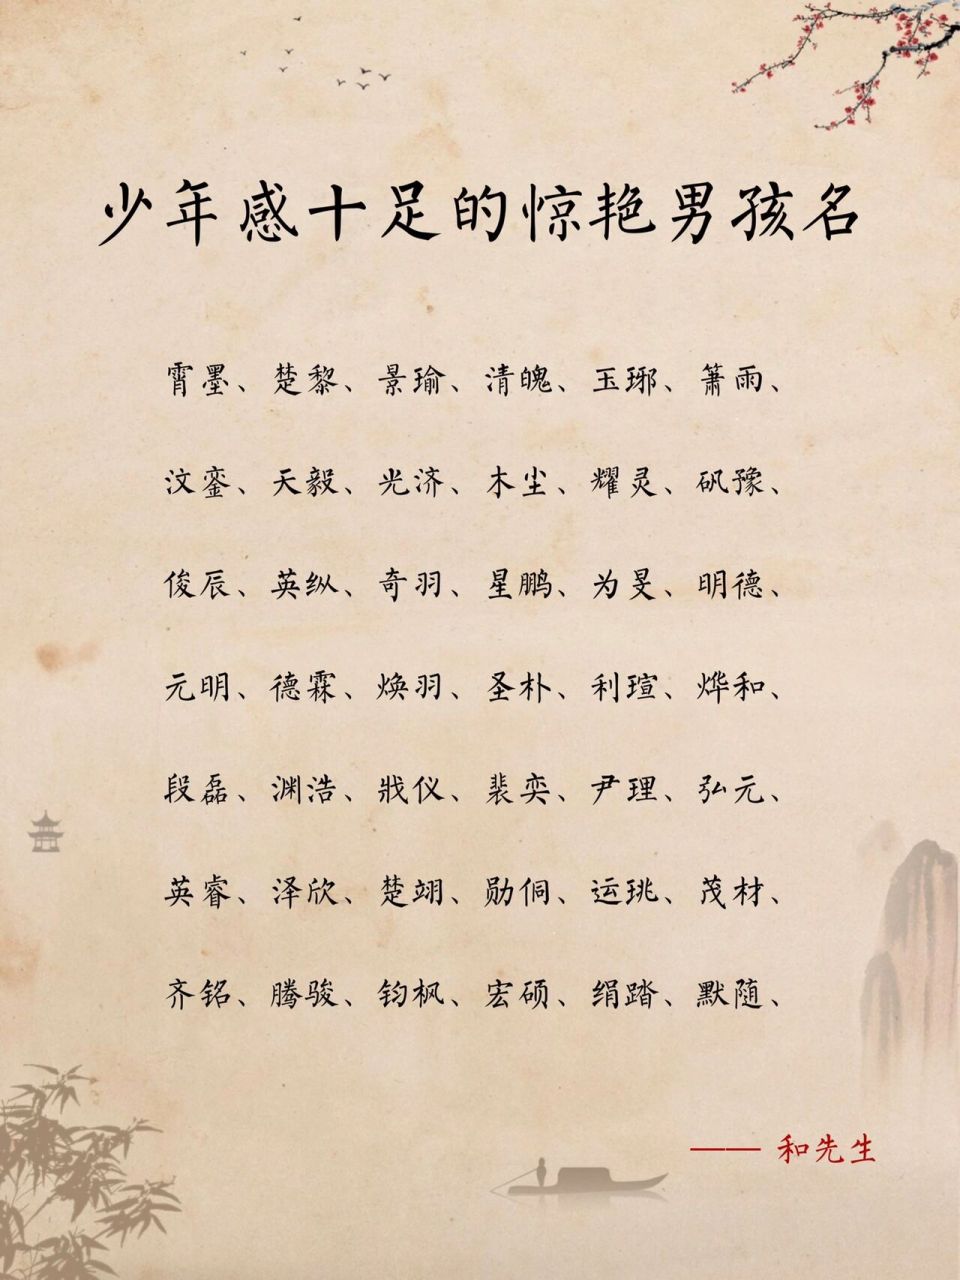 少年感十足的惊艳男孩名
霄墨、楚黎、景瑜、清魄、玉琊、箫雨、
汶銮、天毅、光济、木尘、耀灵、矾豫、
俊辰、英纵、奇羽、星鹏、为旻、明德、
元明、德霖、焕羽、圣朴、利瑄、烨和、
段磊、渊浩、戕仪、裴奕、尹理、弘元、
英睿、泽欣、楚翊、勋侗、运珧、茂材、
齐铭、腾骏、钧枫、宏硕、绢踏、默随、
—— 和先生